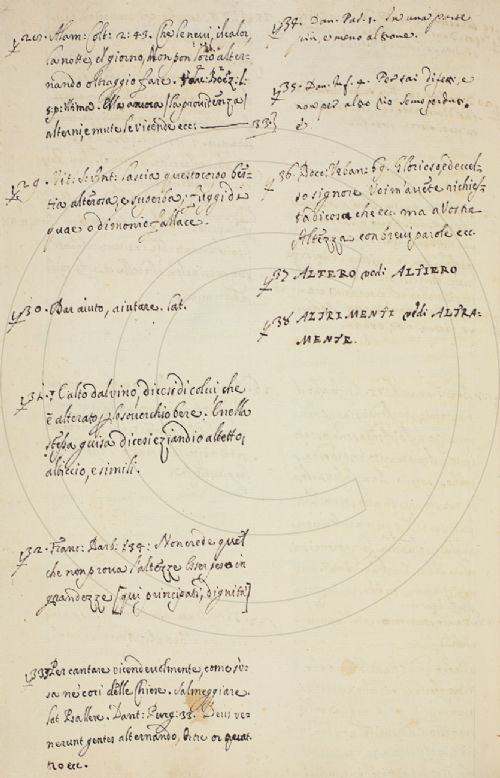 128. Alam: Colt: 2: 43. Che le nevi, il calor,
la notte, e'l giorno, Non pon loro alter-
nando oltraggio fare.
s. p: Ella ancora (la providenza)
alterni, e mute le vicende ecc: 33.
129. Vit: S. Ant: lascia questo corpo bes-
tia alterosa, e superba, Fuggi di
qua o dimonio fallace.
130. Dar aiuto, aiutare. lat.
131. Alto dal vino, dicesi di colui che
è alterato per lo soverchio bere. E nella
stessa guisa dicesi eziandio altetto,
alticcio, e simili.
132. Franc: Barb: 134: Non crede quel
che non prova l'altezze Esser peso in
grandezze [qui principati, dignità]
133. Per cantare vicendevolmente, come s'u-
sa ne' cori delle Chiese. Salmeggiare.
lat. Psallere. Dant: Purg: 33. Deus ve-
nerunt gentes alternando, Or tre or quat-
tro ecc.
134. Dan. Par. 1. In una parte
più, e meno altrove.
135. Dan. Inf. 4. Per tai difetti, e
non per altro rio Semo perduti.
136. Bocc. Urban: 69. Glorioso, ed eccel-
so signore Voi m'avete richies-
ta di cosa che ecc. ma a Vostra
Altezza con brevi parole ecc.
137 ALTERO vedi ALTIERO
138 ALTRIMENTI vedi ALTRA-
MENTE.